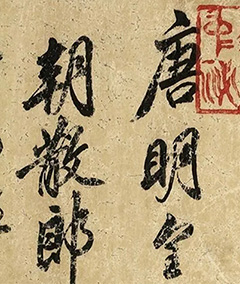 唐明皇
朝散郎